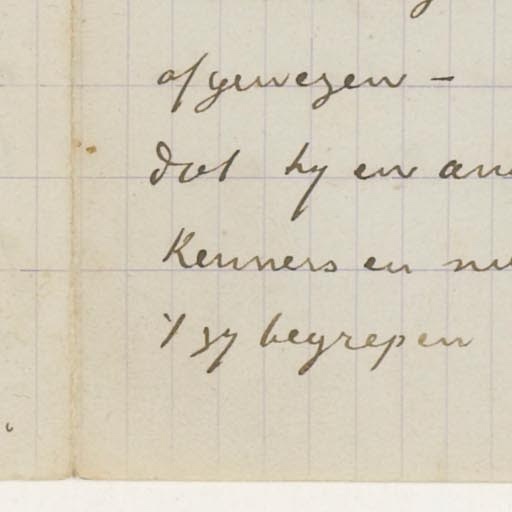 afgewezen –
dat hy en
Kenners en
't zy begrepen